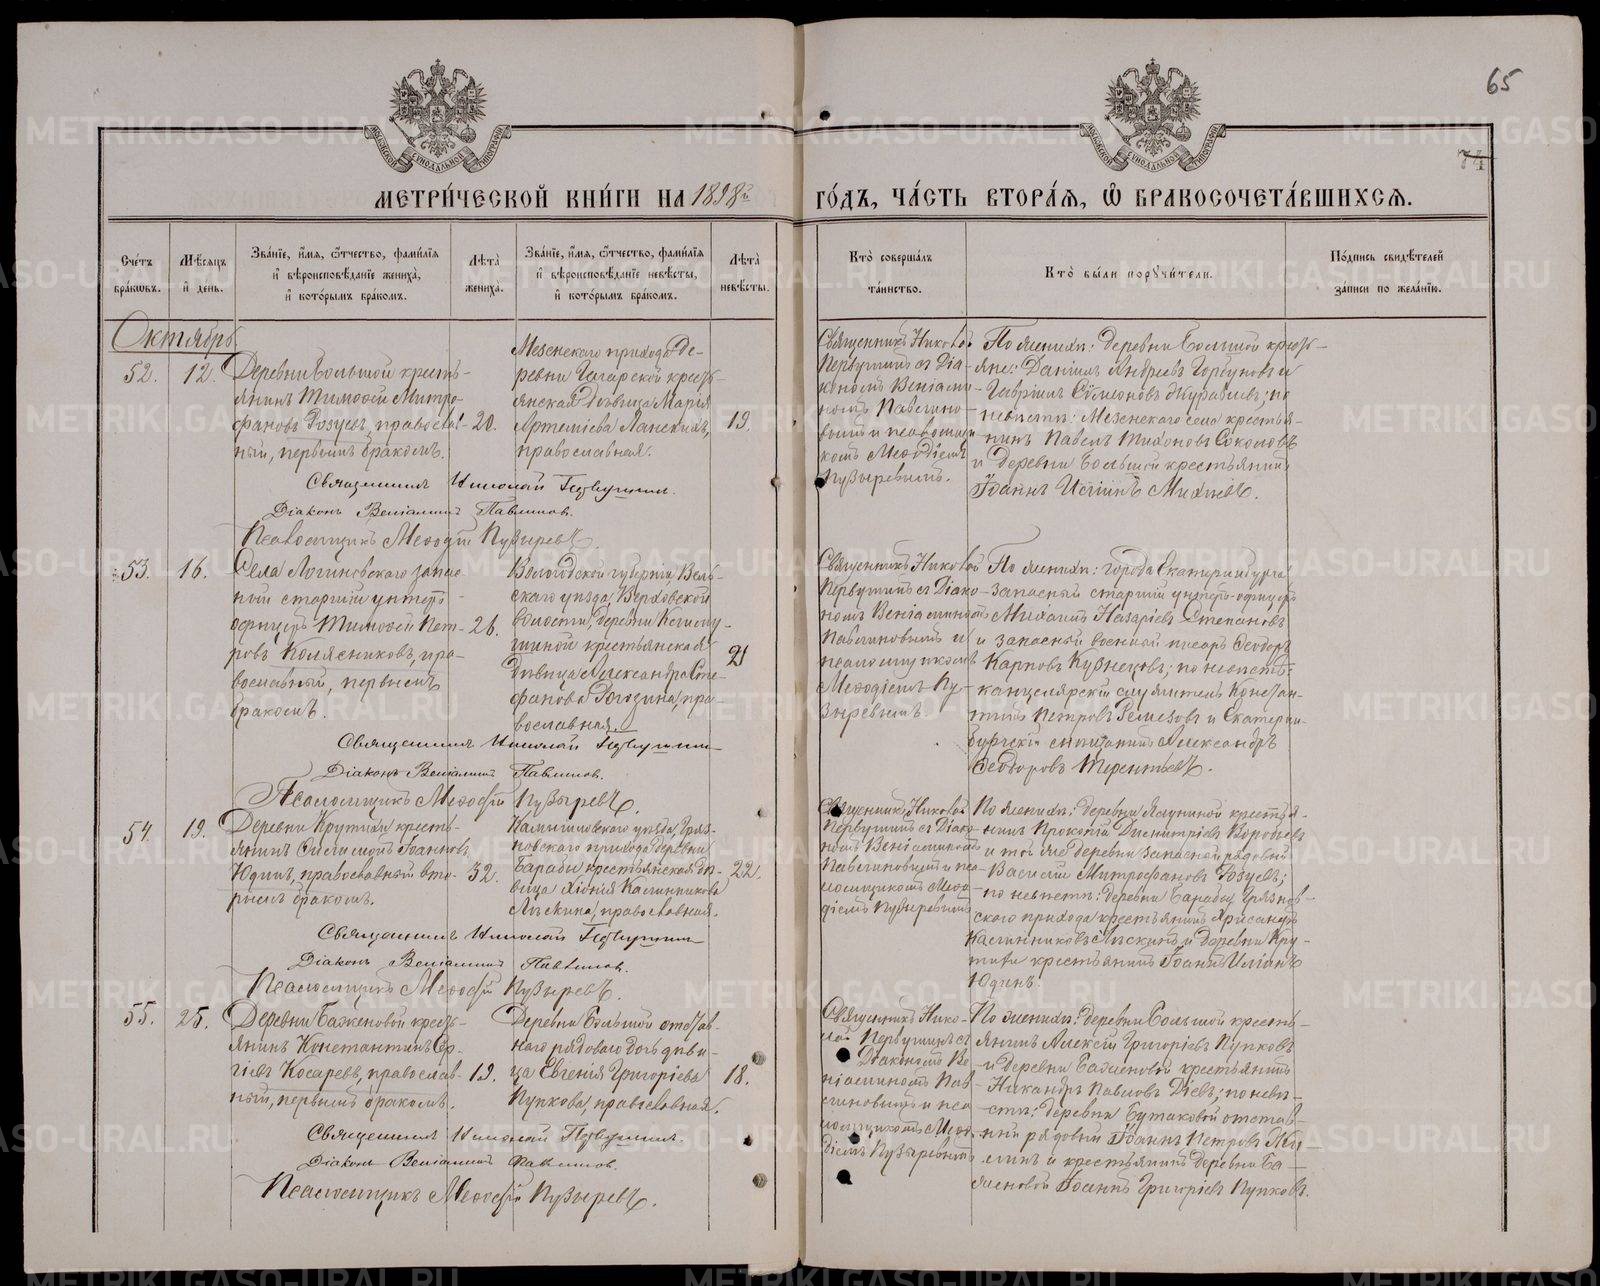 65
74
МЕТРИ́ЧЕСКОЙ КНИ́ГИ НА 1898й ГО́ДЪ, ЧА́СТЬ ВТОРА́Я, Ѡ БРАКОСОЧЕТА́ВШИХСЯ.
Сче́тъ бра́кѡвъ.
Мѣ́сяцъ и҆ де́нь.
Зва́нїе, и҆́мя, ѻ҆́тчество, фами́лїя и҆ вѣроисповѣ́данїе жениха̀, и҆ кото́рымъ бра́комъ.
Лѣ́та жениха̀.
Зва́нїе, и҆́мя, ѻ҆́тчество, фами́лїя и҆ вѣроисповѣ́данїе невѣ́сты, и҆ кото́рымъ бра́комъ.
Лѣ́та невѣ́сты.
Кто̀ соверша́лъ та́инство.
Кто̀ бы́ли порꙋчи́тели.
По́дпись свидѣ́телей за́писи по жела́нїю.
Октябрь
52.
12.
Деревни Большой кресть-
янинъ Тимоѳей Митро-
фановъ Гозуевъ, православ-
ный, первымъ бракомъ.
20.
Мезенскаго прихода де-
ревни Гагарской кресть-
янская дѣвица Марія
Артемьева Ланскихъ,
православная.
19.
Священникъ Николай
Первушинъ съ Діа-
кономъ Веніами-
номъ Павлино-
вымъ и псаломщи-
комъ Меѳодіемъ
Пузыревымъ.
По женихѣ: деревни Большой кресть-
яне: Даніилъ Андреевъ Горбуновъ и
Гавріилъ Сѵмеоновъ Журавлевъ; по
невѣстѣ: Мезенскаго села крестья-
нинъ Павелъ Тихоновъ Соколовъ
и деревни Большой крестьянинъ
Іоаннъ Михѣевъ.
Священникъ Николай Первушинъ.
Діаконъ Веніаминъ Павлиновъ.
Псаломщикъ Меѳодій Пузыревъ.
53.
16.
Села Логиновскаго запас-
ный старшій унтеръ-
офицеръ Тимоѳей Пет-
ровъ Колясниковъ, пра-
вославный, первымъ
бракомъ.
26.
Вологодской губерніи, Вель-
скаго уѣзда, Верховской
волости, деревни
крестьянская
дѣвица Александра Сте-
фанова Рогозина, пра-
вославная.
21
Священникъ Николай
Первушинъ съ Діако-
номъ Веніаминомъ
Павлиновымъ и
псаломщикомъ
Меѳодіемъ Пу-
зыревымъ.
По женихѣ: города Екатеринбурга
запасный старшій унтеръ-офицеръ
Михаилъ Назаріевъ Степановъ
и запасный военный писарь Ѳеодоръ
Карповъ Кузнецовъ; по невѣстѣ:
канцелярскій служитель Констан-
тинъ Петровъ Ремезовъ и Екатерин-
бургскій мѣщанинъ Александръ
Ѳеодоровъ Терентьевъ.
Священникъ Николай Первушинъ
Діаконъ Веніаминъ Павлиновъ.
Псаломщикъ Меѳодій Пузыревъ.
54.
19.
Деревни Крутихи кресть-
янинъ Филимонъ Іоанновъ
Юдинъ, православный вто-
рымъ бракомъ.
32.
Камышловскаго уѣзда, Гряз-
новскаго прихода деревни
Барабы крестьянская дѣ-
вица Хіонія Калинникова
Лыскина, православная.
22.
Священникъ Николай
Первушинъ съ Діако-
номъ Веніаминомъ
Павлиновымъ и пса-
ломщикомъ Меѳо-
діемъ Пузыревымъ
По женихѣ: деревни крестья-
нинъ Прокопій Димитріевъ Воробьевъ
и той же деревни запасной рядовой
Василій Митрофановъ Гозуевъ;
по невѣстѣ: деревни Барабы, Грязнов-
скаго прихода крестьянинъ Хрисанѳъ
Калинниковъ Лыскинъ и деревни Кру-
тихи крестьянинъ Іоаннъ Иліинъ
Юдинъ.
Священникъ Николай Первушинъ
Діаконъ Веніаминъ Павлиновъ.
Псаломщикъ Меѳодій Пузыревъ.
55.
25.
Деревни Баженовой кресть-
янинъ Константинъ Сер-
гіевъ Косаревъ, православ-
ный, первымъ бракомъ.
19.
Деревни Большой отстав-
наго рядоваго дочь дѣви-
ца Евгенія Григоріева
Пупкова, православная.
18.
Священникъ Нико-
лай Первушинъ съ
Діакономъ Ве-
ніаминомъ Пав-
линовымъ и пса-
ломщикомъ Меѳо-
діемъ Пузыревымъ
По женихѣ: деревни Большой кресть-
янинъ Алексій Григоріевъ Пупковъ
и деревни Баженовой крестьянинъ
Никандръ Павловъ Діевъ; по невѣ-
стѣ: деревни Бутаковой отстав-
ный рядовой Іоаннъ Петровъ
и крестьянинъ деревни Ба-
женовой Іоаннъ Григоріевъ Пупковъ.
Священникъ Николай Первушинъ.
Діаконъ Веніаминъ Павлиновъ.
Псаломщикъ Меѳодій Пузыревъ.
METRIKI.GASO-URAL.RU